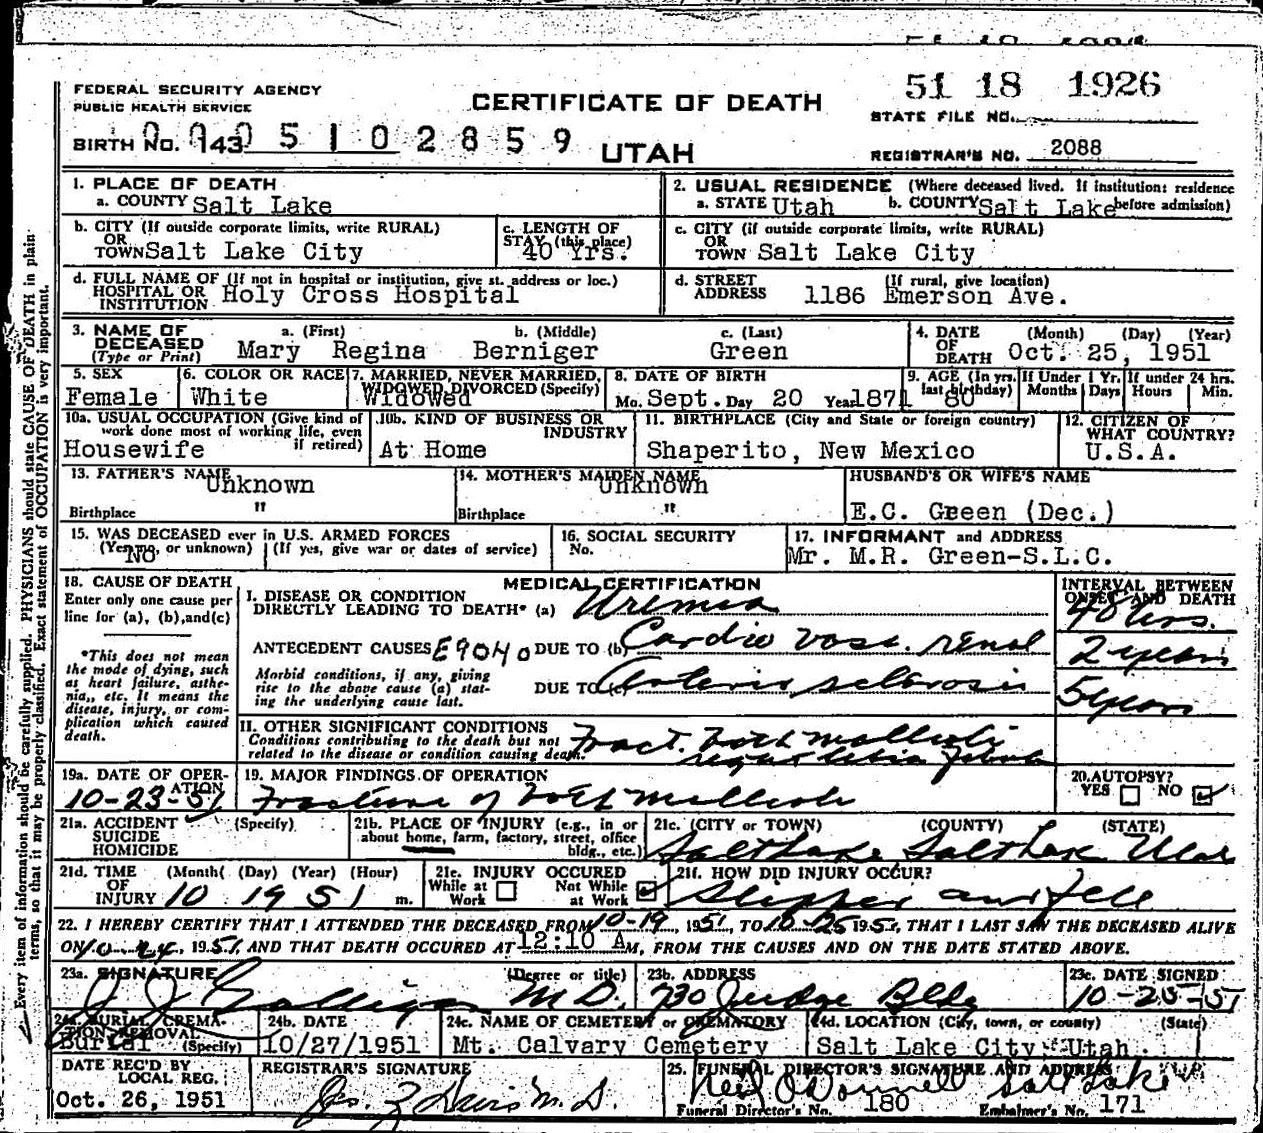 51 18 1926
FEDERAL SECURITY AGENCY
PUBLIC HEALTH SERVICE
CERTIFICATE OF DEATH
STATE FILE NO.
BIRTH NO. 143 05102859
UTAH
REGISTRAR'S NO. 2088
Every item of information should be carefully supplied. PHYSICIANS should state CAUSE OF DEATH in plain
terms, so that it may be properly classified. Exact statement of OCCUPATION is very important.
1. PLACE OF DEATH
a. COUNTY Salt Lake
2. USUAL RESIDENCE (Where deceased lived. If institution: residence before admission)
a. STATE Utah b. COUNTY Salt Lake
b. CITY (If outside corporate limits, write RURAL)
OR
TOWN Salt Lake City
c. LENGTH OF
STAY (this place)
40 Yrs.
c. CITY (if outside corporate limits, write RURAL)
OR
TOWN Salt Lake City
d. FULL NAME OF (If not in hospital or institution, give st. address or loc.)
HOSPITAL OR
INSTITUTION Holy Cross Hospital
d. STREET
ADDRESS (If rural, give location)
1186 Emerson Ave.
3. NAME OF
DECEASED
(Type or Print)
a. (First) b. (Middle) c. (Last)
Mary Regina Berniger Green
4. DATE
OF
DEATH
(Month) (Day) (Year)
Oct. 25, 1951
5. SEX
Female
6. COLOR OR RACE
White
7. MARRIED, NEVER MARRIED,
WIDOWED, DIVORCED (Specify)
Widowed
8. DATE OF BIRTH
Mo. Sept. Day 20 Year 1871
9. AGE (In yrs.
last birthday)
80
If Under 1 Yr.
Months Days
If under 24 hrs.
Hours Min.
10a. USUAL OCCUPATION (Give kind of
work done most of working life, even
if retired)
Housewife
10b. KIND OF BUSINESS OR
INDUSTRY
At Home
11. BIRTHPLACE (City and State or foreign country)
Shaperito, New Mexico
12. CITIZEN OF
WHAT COUNTRY?
U.S.A.
13. FATHER'S NAME
Unknown
Birthplace "
14. MOTHER'S MAIDEN NAME
Unknown
Birthplace "
HUSBAND'S OR WIFE'S NAME
E.C. Green (Dec.)
15. WAS DECEASED ever in U.S. ARMED FORCES
(Yes, no, or unknown) (If yes, give war or dates of service)
No
16. SOCIAL SECURITY
No.
17. INFORMANT and ADDRESS
Mr. M.R. Green-S.L.C.
18. CAUSE OF DEATH
Enter only one cause per
line for (a), (b), and (c)
*This does not mean
the mode of dying, such
as heart failure, asthe-
nia,, etc. It means the
disease, injury, or com-
plication which caused
death.
MEDICAL CERTIFICATION
INTERVAL BETWEEN
ONSET AND DEATH
I. DISEASE OR CONDITION
DIRECTLY LEADING TO DEATH* (a) Uremia
48 hrs.
ANTECEDENT CAUSES E9040 DUE TO (b) Cardio vasc. renal
2 years
Morbid conditions, if any, giving
rise to the above cause (a) stat-
ing the underlying cause last.
DUE TO (c) Arterio sclerosis
5 years
II. OTHER SIGNIFICANT CONDITIONS
Conditions contributing to the death but not
related to the disease or condition causing death.
Fract. both malleoli
right tibia fibula
19a. DATE OF OPER-
ATION
10-23-51
19. MAJOR FINDINGS OF OPERATION
Fracture of both malleoli
20. AUTOPSY?
YES NO
21a. ACCIDENT
SUICIDE
HOMICIDE
(Specify)
21b. PLACE OF INJURY (e.g., in or
about home, farm, factory, street, office
bldg., etc.)
21c. (CITY or TOWN) (COUNTY) (STATE)
Salt Lake Salt Lake Utah
21d. TIME
OF
INJURY
(Month) (Day) (Year) (Hour)
10 19 51 m.
21e. INJURY OCCURED
While at
Work
Not While
at Work
21f. HOW DID INJURY OCCUR?
Slipped and fell
22. I HEREBY CERTIFY THAT I ATTENDED THE DECEASED FROM 10-19, 1951, TO 10-25 1951, THAT I LAST SAW THE DECEASED ALIVE
ON 10-24, 1951, AND THAT DEATH OCCURED AT 12:10 AM, FROM THE CAUSES AND ON THE DATE STATED ABOVE.
23a. SIGNATURE (Degree or title)
J J Galligan M D.
23b. ADDRESS
730 Judge Bldg
23c. DATE SIGNED
10-25-51
24a. BURIAL, CREMA-
TION, REMOVAL
(Specify)
Burial
24b. DATE
10/27/1951
24c. NAME OF CEMETERY or CREMATORY
Mt. Calvary Cemetery
24d. LOCATION (City, town, or county) (State)
Salt Lake City Utah
DATE REC'D BY
LOCAL REG.
Oct. 26, 1951
REGISTRAR'S SIGNATURE
Jos. Z Davis M. D.
25. FUNERAL DIRECTOR'S SIGNATURE AND ADDRESS
Neil O'Donnell Salt Lake
Funeral Director's No. 180 Embalmer's No. 171